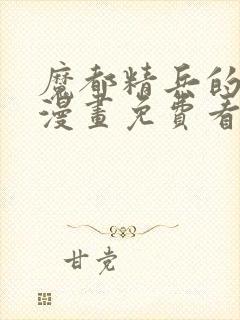 魔都精兵的
漫畫免費看
甘党